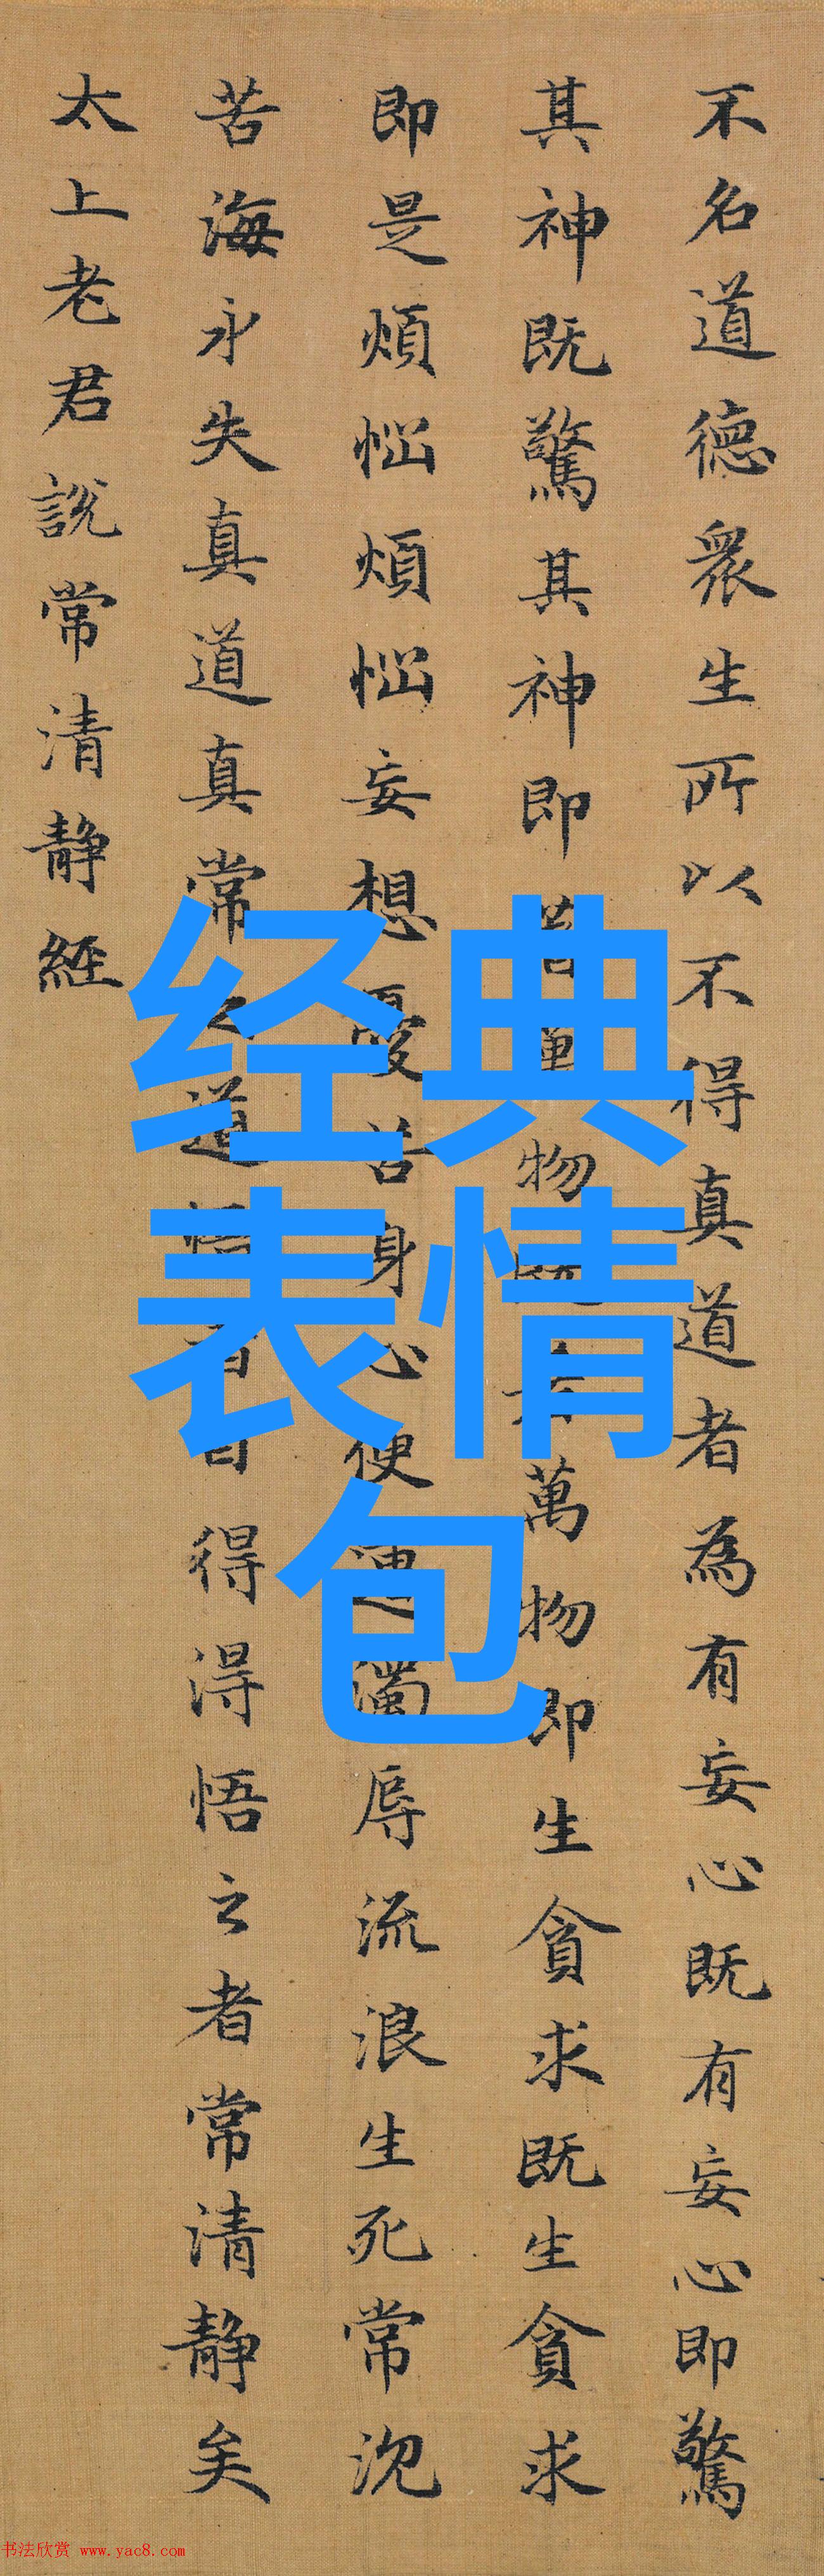 不名道德眾生所以不得真道者為有妄心既有妄心即驚
其神既驚其神即著萬物既著萬物即生貪求既生貪求
即是煩惱煩惱妄想憂苦身心便遭濁辱流浪生死常沉
苦海永失真道真常之道悟者自得得悟之者常清靜矣
太上老君說常清靜經
经典
表情
包
书法欣赏 www.yac8.com